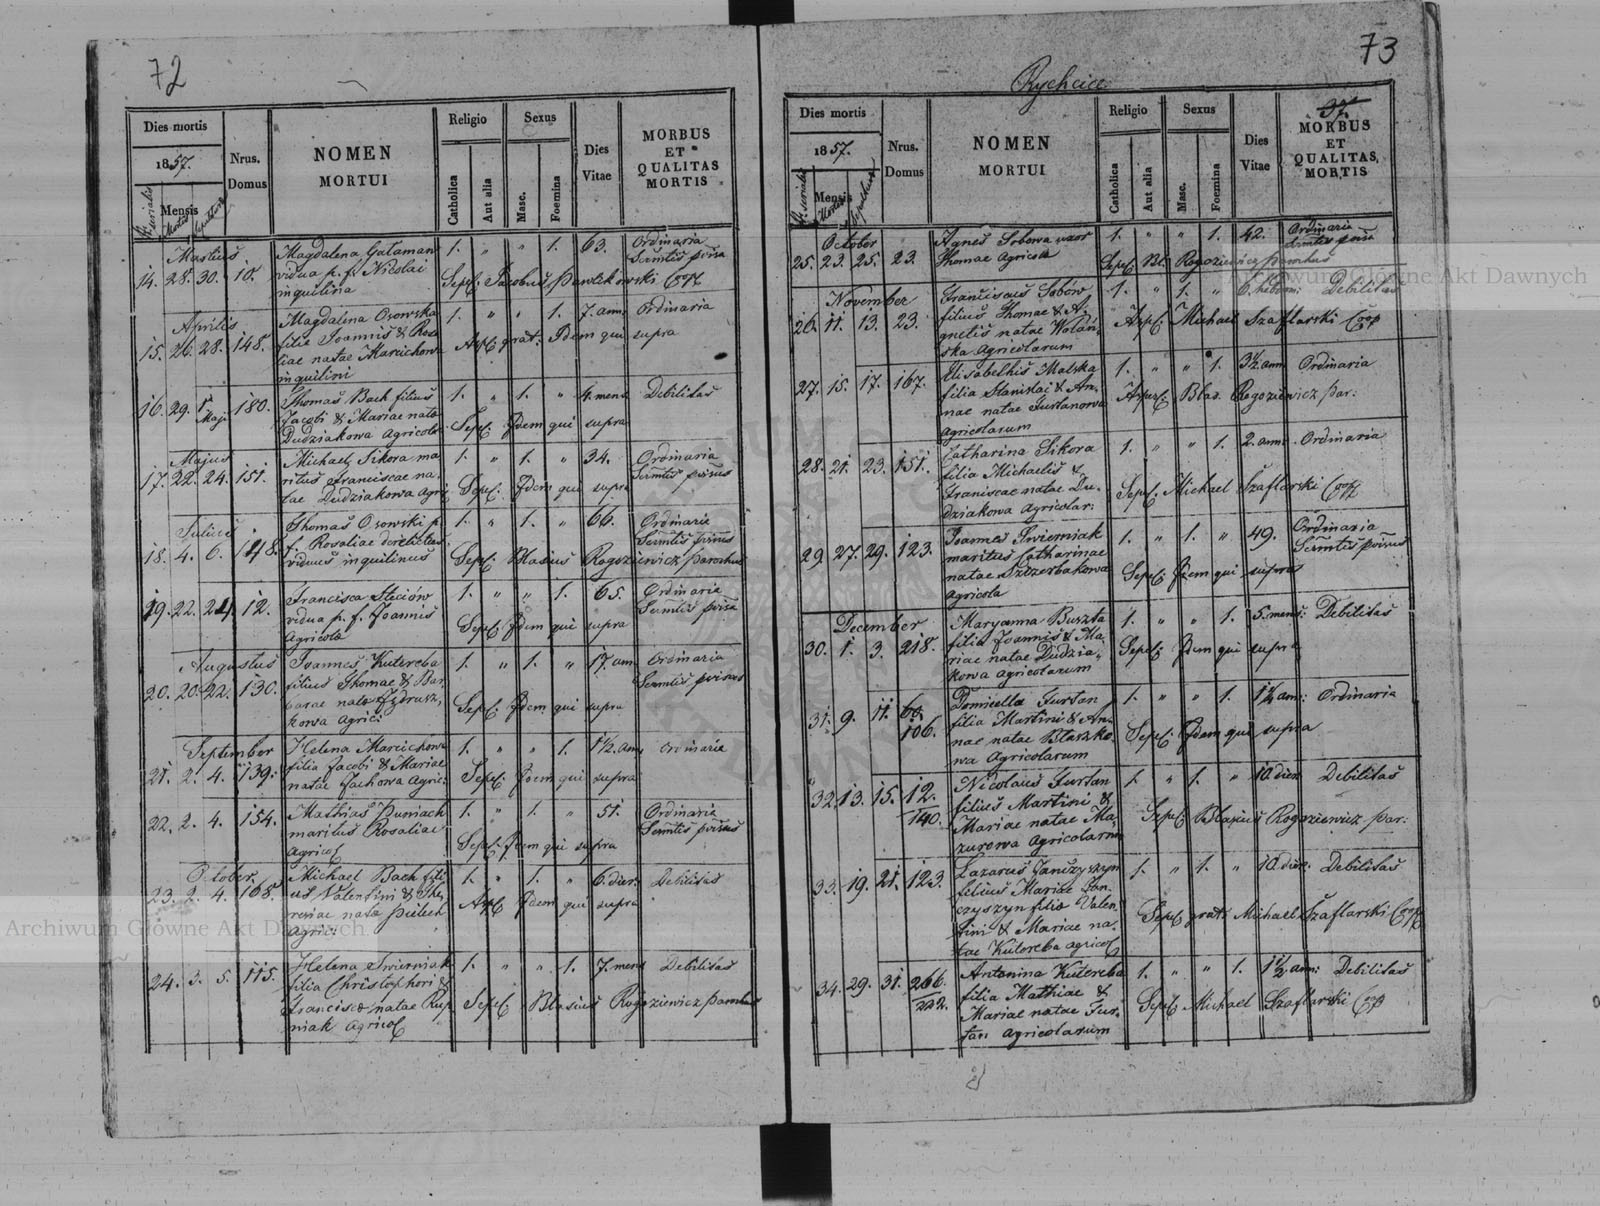 72
Dies mortis
1857.
Nrus.
Domus
NOMEN
MORTUI
Religio
Sexus
Dies
Vitae
MORBUS
ET
QUALITAS
MORTIS
Nr. serialis
Mensis
Mortis
Sepulturae
Catholica
Aut alia
Masc.
Foemina
Martius
14. 28. 30. 10. Magdalena Gataman 1. " " 1. 63. Ordinaria
vidua p. f. Nicolai
inquilina Sepel: Jacobus Pantlikowski Coop
Aprilis
15. 26. 28. 148. Magdalena Osowska 1. " " 1. 7. ann: Ordinaria
filia Joannis & Rosa
liae natae Marcichowa grat: Idem qui supra
inquilini
16. 29. 1 Maji 180. Thomas Bach filius 1. " 1. " 4. mens Debilitas
Jacobi & Mariae nata
Dudziakowa Agricola Sepel: Idem qui supra
Majus
17. 22. 24. 151. Michael Sikora ma 1. " 1. " 34. Ordinaria
ritus Franciscae na
tae Dudziakowa Agr: Sepel: Idem qui supra
Julius
18. 4. 6. 148. Thomas Osowski p. 1. " 1. " 66. Ordinaria
f. Rosaliae derelictus
viduus inquilinus Sepel: Blasius Rogoziewicz Parochus
19. 22. 24. 12. Francisca Steciów 1. " " 1. 65. Ordinaria
vidua p. f. Joannis
Agricola Sepel: Idem qui supra
Augustus
20. 20. 22. 130. Joannes Kutereba 1. " 1. " 17. ann Ordinaria
filius Thomae & Bar
barae nata
kowa Agric: Sepel: Idem qui supra
September
21. 2. 4. 139. Helena Marcichowa 1. " " 1. 1 1/2. ann Ordinaria
filia Jacobi & Mariae
natae Zachowa Agric: Sepel: Idem qui supra
22. 2. 4. 154. Mathias Puniach 1. " 1. " 51. Ordinaria
maritus Rosaliae
Agricol Sepel: Idem qui supra
October
23. 2. 4. 168. Michael Bach fili 1. " 1. " 6. dier: Debilitas
us Valentini & The
resiae nata
Agric: Idem qui supra
24. 3. 5. 115. Helena Swierniak 1. " " 1. 7. mens Debilitas
filia Christophori &
Franciscae natae Rup
niak Agricol Sepel: Blasius Rogoziewicz Parochus
73
Rychcice
37.
Dies mortis
1857.
Nrus.
Domus
NOMEN
MORTUI
Religio
Sexus
Dies
Vitae
MORBUS
ET
QUALITAS
MORTIS
Nr. serialis
Mensis
Mortis
Sepulturae
Catholica
Aut alia
Masc.
Foemina
October
25. 23. 25. 23. Agnes Sobowa uxor 1. " " 1. 42. Ordinaria
Thomae Agricola Sepel: Bl. Rogoziewicz Parochus
November
26. 11. 13. 23. Franciscus Sobów 1. " 1. " 6. hebdom: Debilitas
filius Thomae & A
gnetis natae Wolań
ska Agricolarum Michael Szaflarski Coop
27. 15. 17. 167. Elisabethis Malska 1. " " 1. 3 1/2. ann Ordinaria
filia Stanislai & An
nae natae Furtanowa
Agricolarum Blas. Rogoziewicz Par:
28. 21. 23. 151. Catharina Sikora 1. " " 1. 2. ann: Ordinaria
filia Michaelis &
Franiscae natae Du
dziakowa Agricolar: Sepel: Michael Szaflarski Coop
29. 27. 29. 123. Joannes Swierniak 1. " 1. " 49. Ordinaria
maritus Catharinae
natae Szczerbakowa
Agricola Sepel: Idem qui supra
December
30. 1. 3. 218. Maryanna Buszta 1. " " 1. 5. mens: Debilitas
filia Joannis & Ma
riae natae Dudzia
kowa Agricolarum Sepel: Idem qui supra
31. 9. 11. 106. Domicella Furtan 1. " " 1. 1 1/2 ann: Ordinaria
filia Martini & An
nae natae Blaszko
wa Agricolarum Sepel: Idem qui supra
32. 13. 15. 12. 140. Nicolaus Furtan 1. " 1. " 10. dier Debilitas
filius Martini &
Mariae natae Ma
zurowa Agricolarum Sepel: Blasius Rogoziewicz Par:
33. 19. 21. 123. Lazarus Janczyszyn 1. " 1. " 10. dier: Debilitas
filius Mariae Jan
czyszyn filia Valen
tini & Mariae na
tae Kutereba Agricol Sepel: grat: Michael Szaflarski Coop
34. 29. 31. 266. 222. Antonina Kutereba 1. " " 1. 1 1/2 ann: Debilitas
filia Mathiae &
Mariae natae Fur
tan Agricolarum Sepel: Michael Szaflarski Coop
Archiwum Główne Akt Dawnych
Archiwum Główne Akt Dawnych